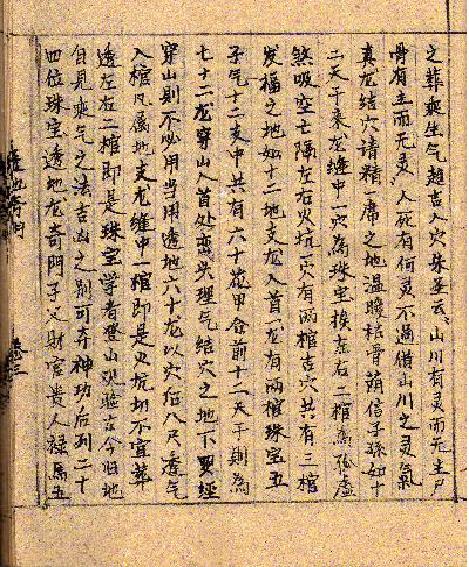 之葬乘生气趋吉入穴朱圣云山川有灵而无主尸
骨有主而无灵人死有何灵不过借山川之灵气
真龙结穴请精一席之地温暖枯骨荫信子孙如十
二天干来龙缝中一穴為珠宝挨左右二棺為孤虚
煞吸空亡隔左右火坑一穴有两棺吉穴共有三棺
发福之地如十二地支龙入首一龙有两棺珠宝五
子气十二支中共有六十花甲合前十二天干則為
七十二龙穿山入首处峦头理气结穴之地下罗经
穿山則不必用当用透地六十龙以穴位八尺透气
入棺凡属地支龙缝中一棺即是火坑切不宜葬
透左右二棺即是珠宝学者登山观验古今旧地
自見乘气之法吉凶之别可夺神功后列二十
四位珠宝透地龙奇门子父财官贵人禄馬五
卷三